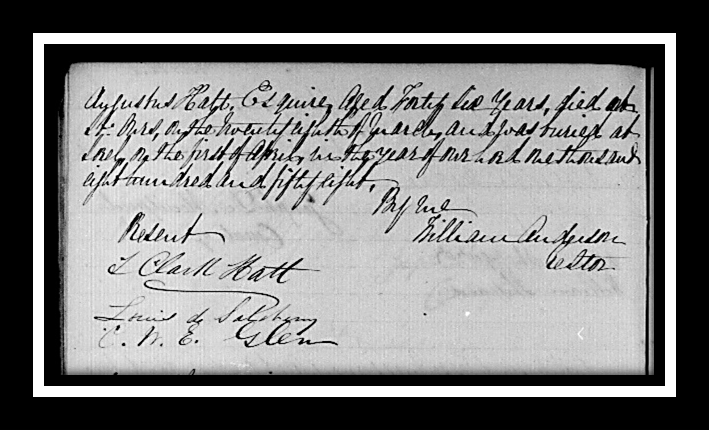 Augustus Hatt, Esquire, Aged Forty Six Years, died at
St. Ours, on the twenty eighth of March, and was buried at
Sorel, on the first of April, in the year of our Lord one thousand
eight hundred and fifty eight.
By me
Present William Anderson
Rector
T Clark Hatt
Louis de Salaberry
C. W. E. Glen